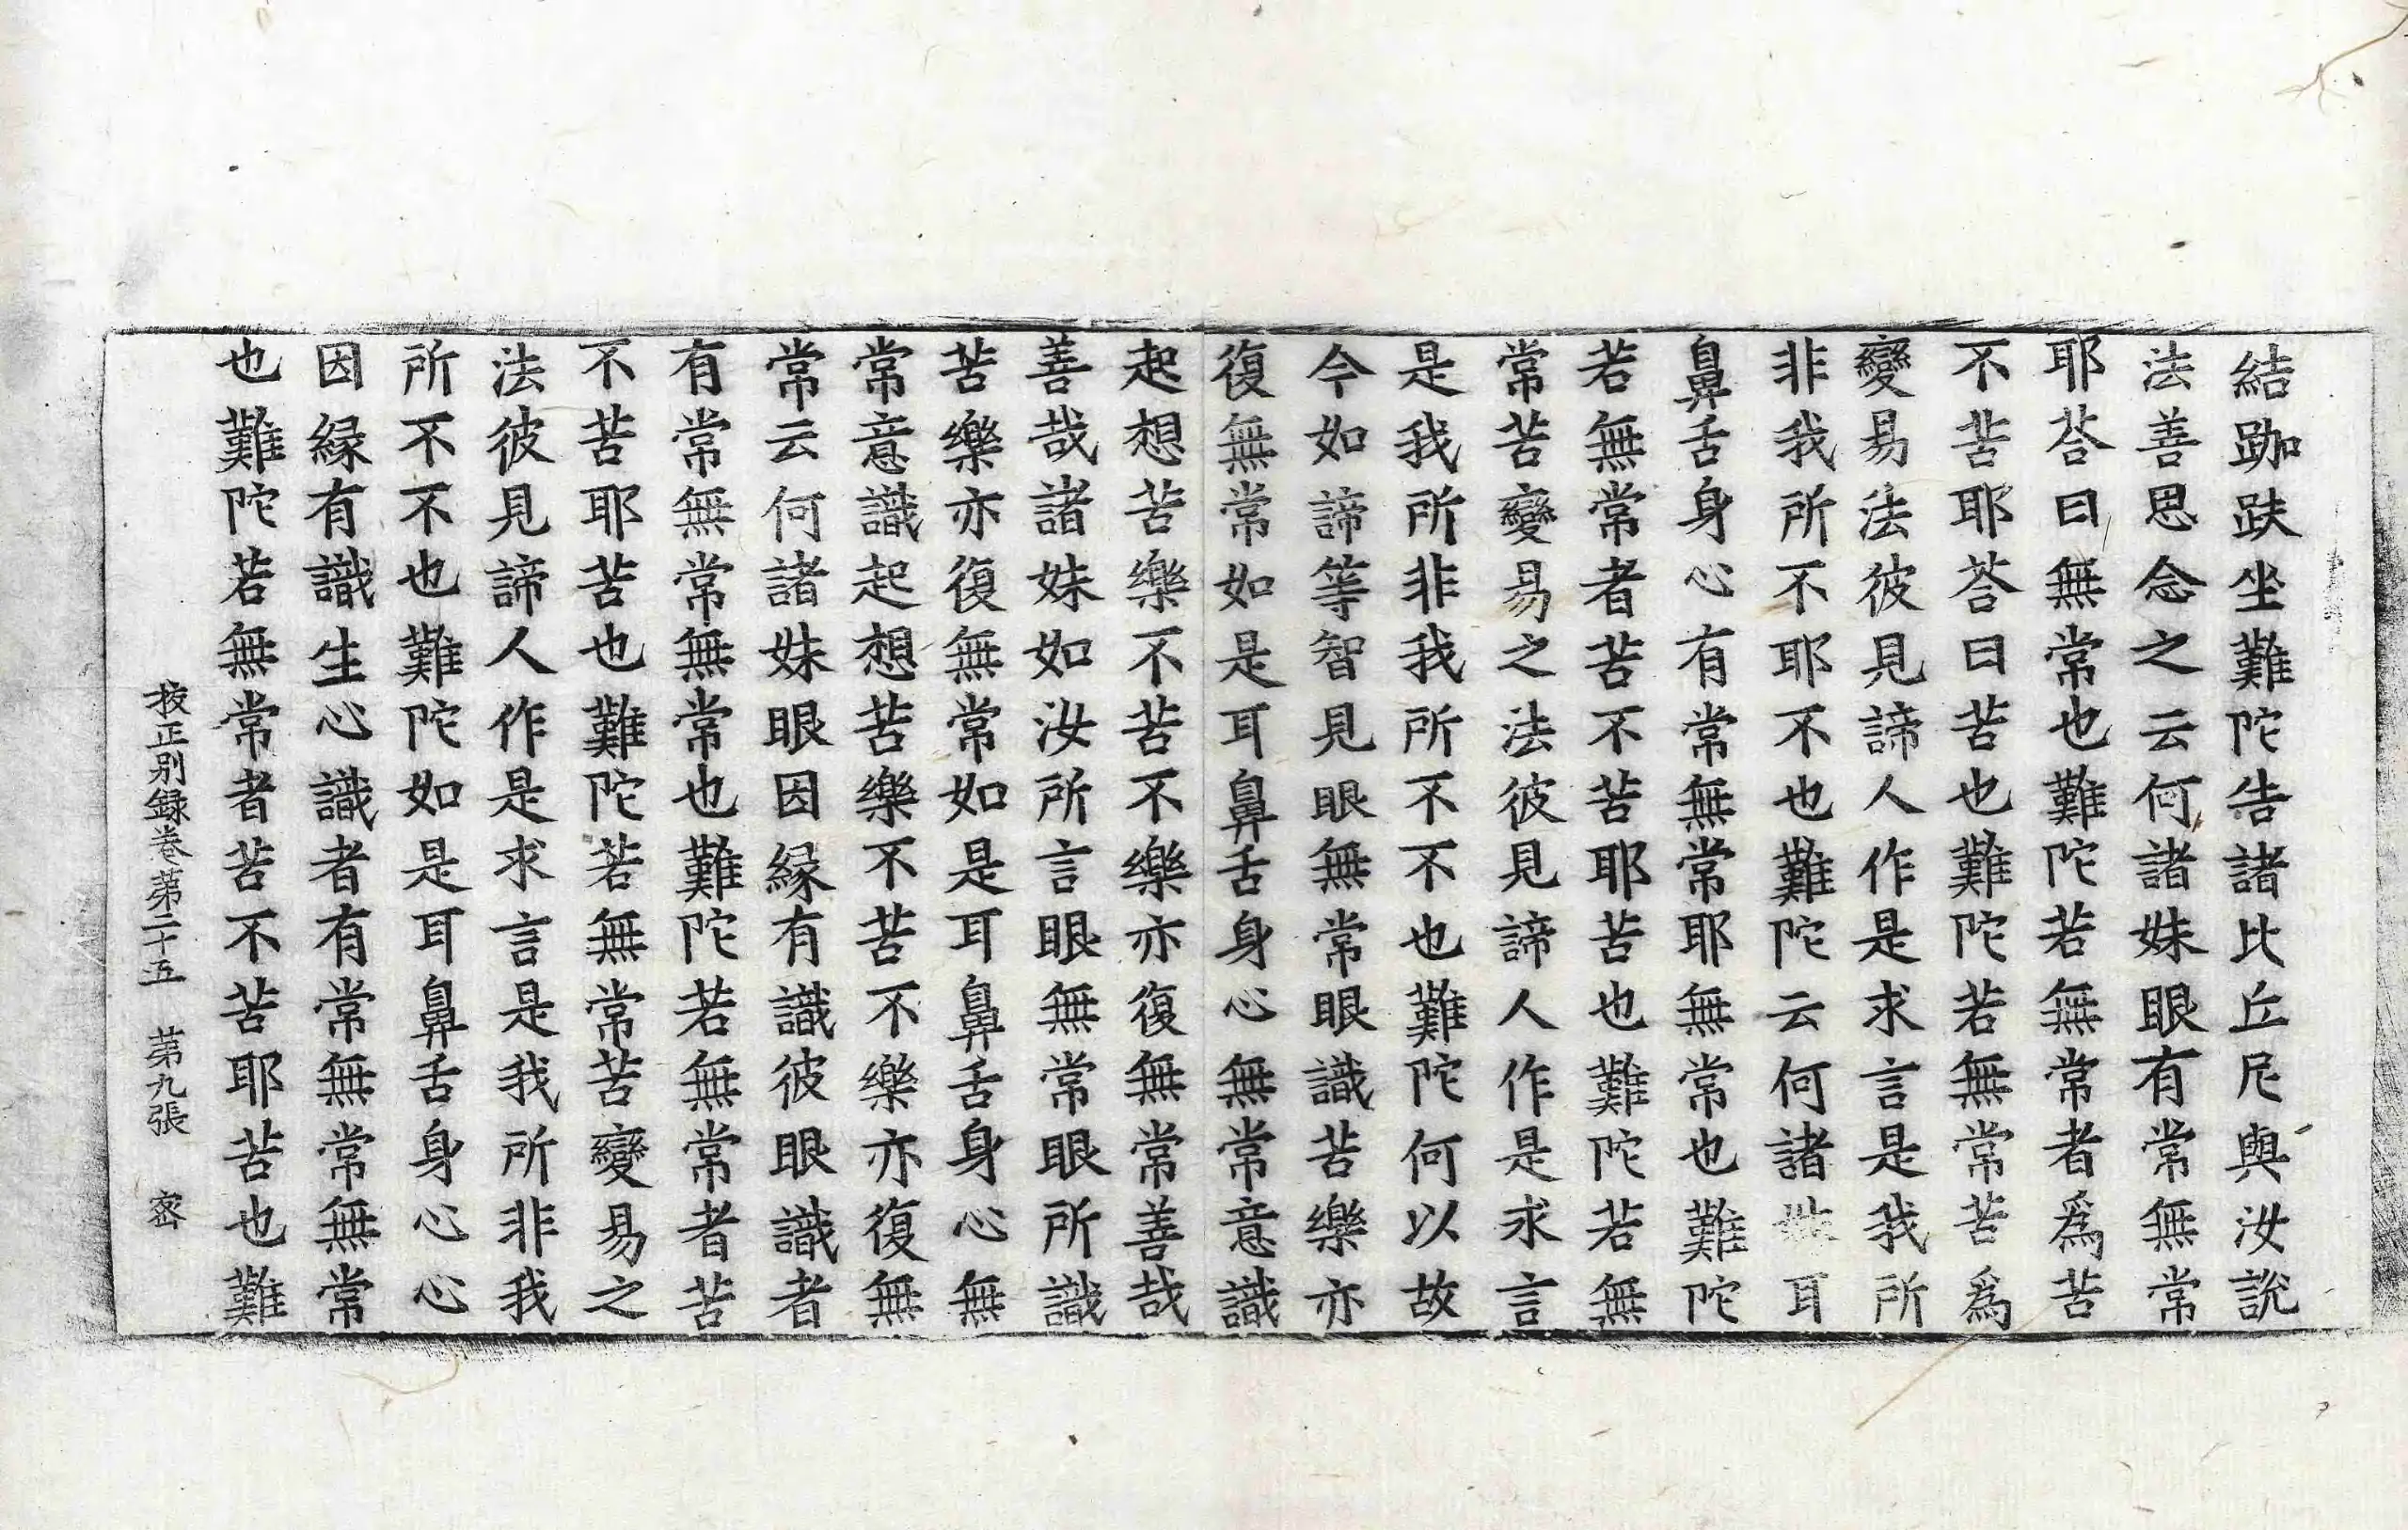 結跏趺坐難陀告諸比丘尼與汝說
法善思念之云何諸妹眼有常無常
耶荅曰無常也難陀若無常者爲苦
不苦耶荅曰苦也難陀若無常苦爲
變易法彼見諦人作是求言是我所
非我所不耶不也難陀云何諸耳
鼻舌身心有常無常耶無常也難陀
若無常者苦不苦耶苦也難陀若無
常苦變易之法彼見諦人作是求言
是我所非我所不不也難陀何以故
今如諦等智見眼無常眼識苦樂亦
復無常如是耳鼻舌身心無常意識
起想苦樂不苦不樂亦復無常善哉
善哉諸妹如汝所言眼無常眼所識
苦樂亦復無常如是耳鼻舌身心無
常意識起想苦樂不苦不樂亦復無
常云何諸妹眼因緣有識彼眼識者
有常無常無常也難陀若無常者苦
不苦耶苦也難陀若無常苦變易之
法彼見諦人作是求言是我所非我
所不不也難陀如是耳鼻舌身心心
因緣有識生心識者有常無常無常
也難陀若無常者苦不苦耶苦也難
挍正別録卷苐二十五 苐九張 宻